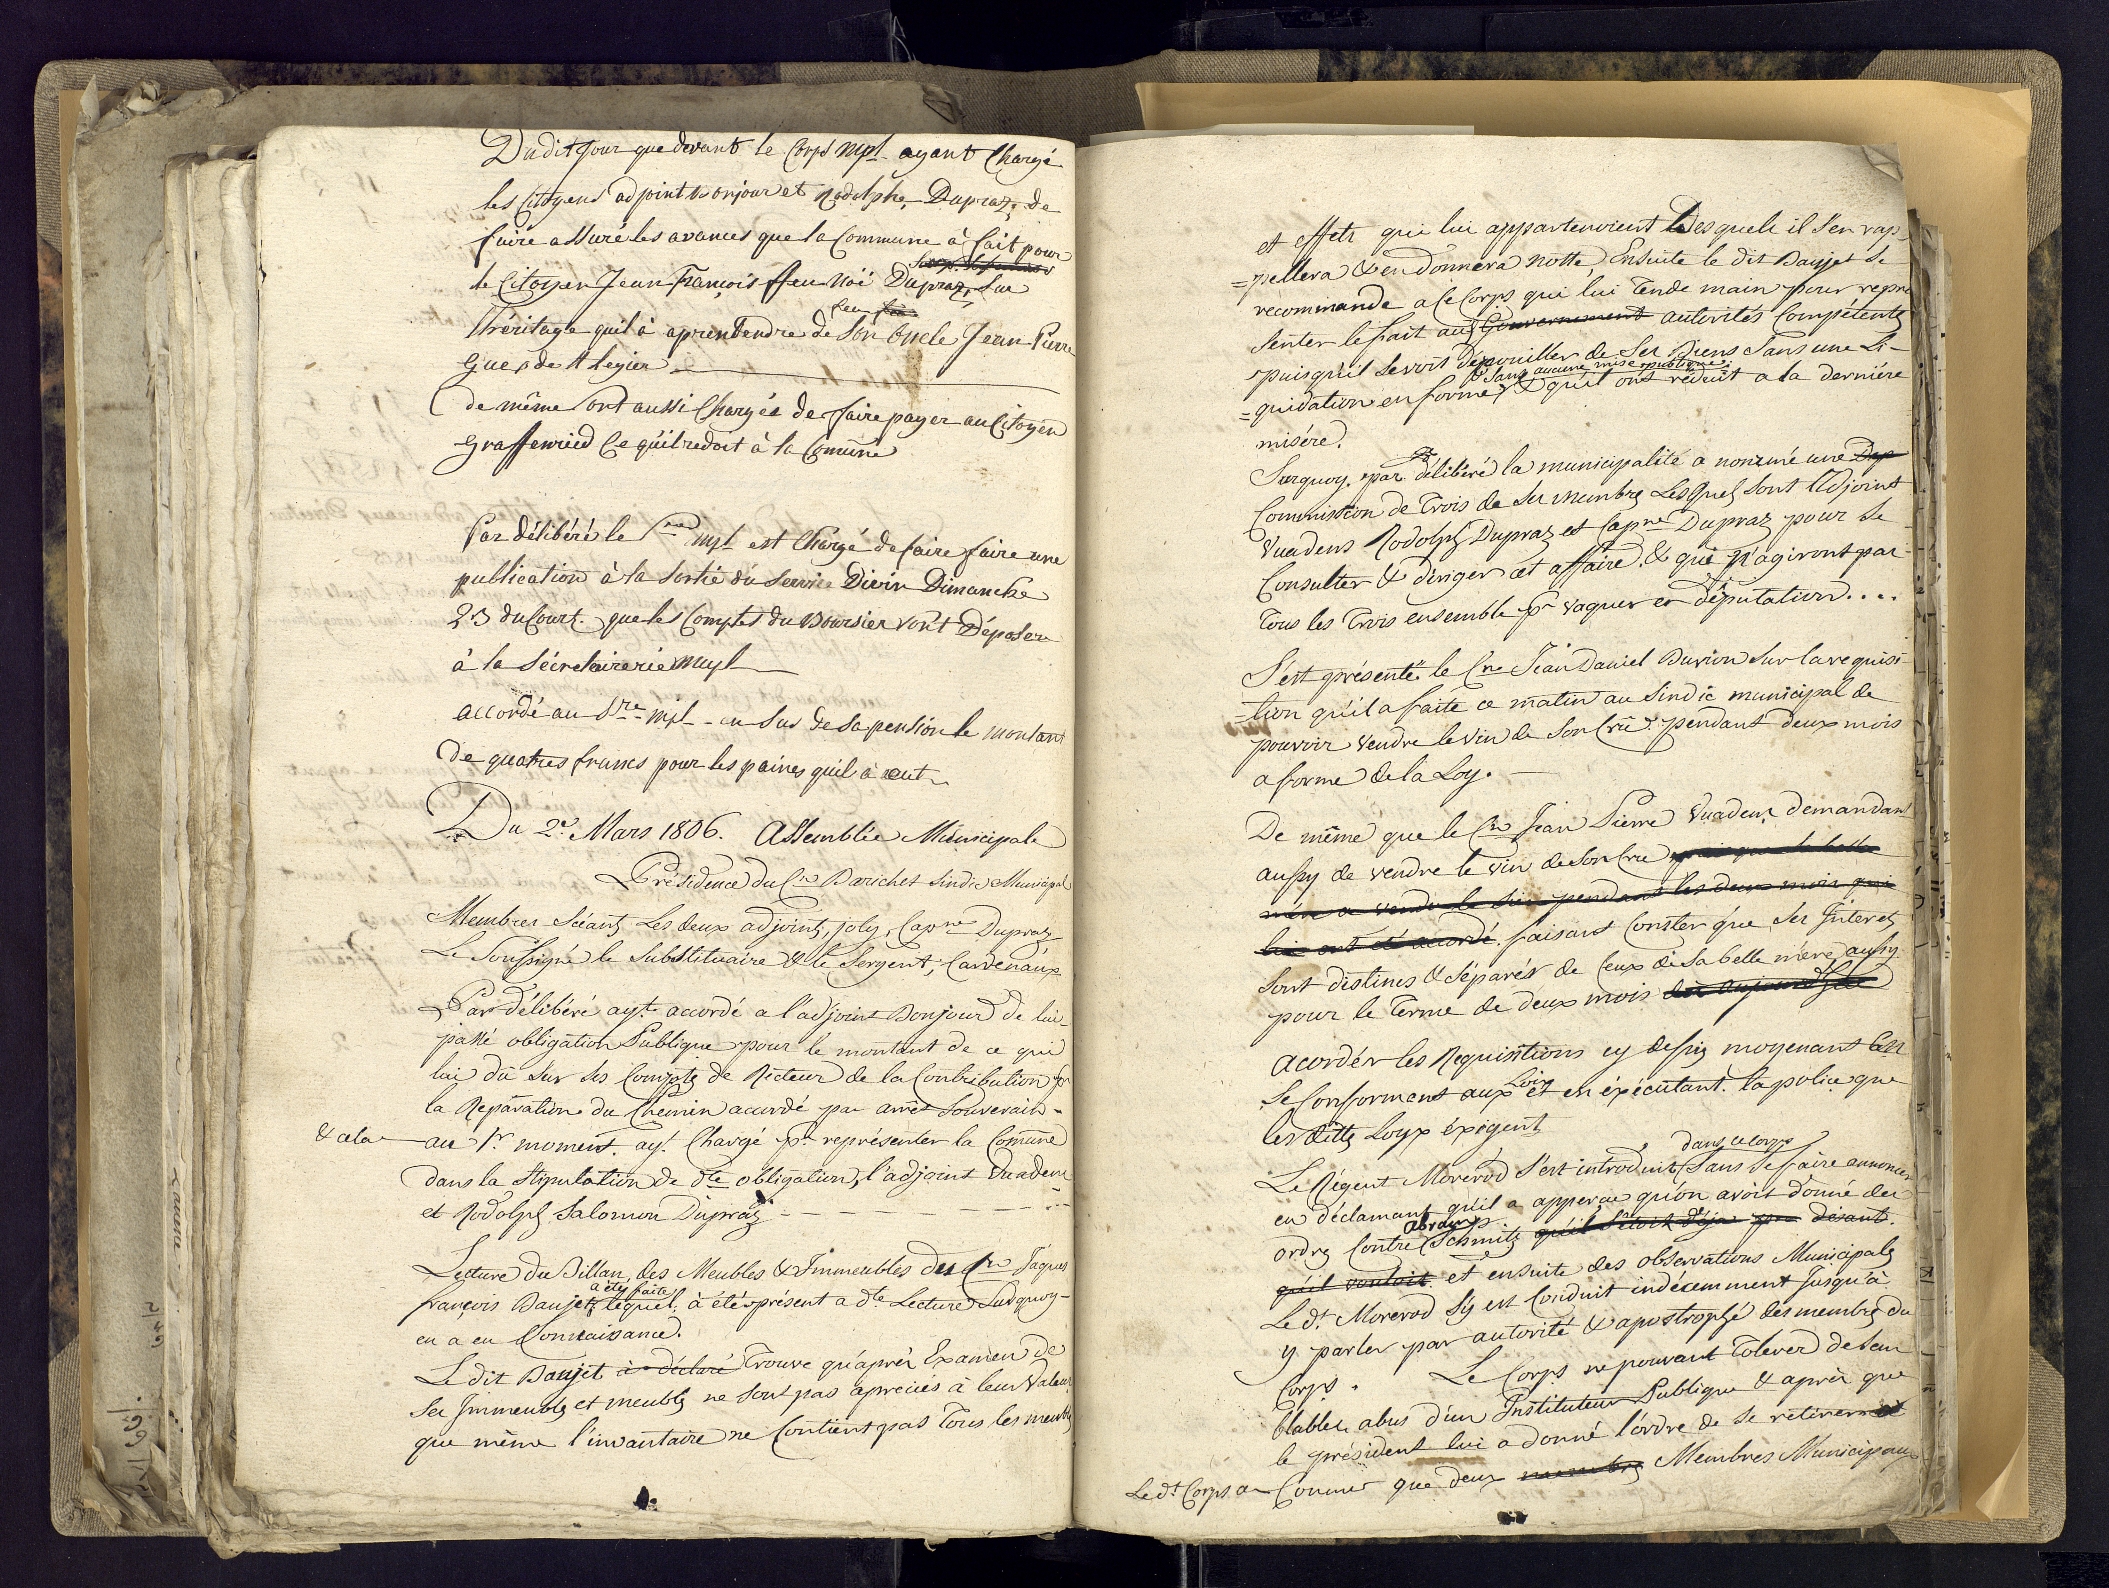 Dudit Jour que devant le Corps mpl ayant Chargé
les Citoyens adjoint Bonjour et Rodolphe Dupraz, de
faire assuré les avances que la Commune à fait pour
le Citoyen Jean François ffeu Noë Dupraz, Sur
feu
l'héritage quil à aprendendre de Son Oncle Jean Pierre
de même Sont aussi Chargés de faire payer au Citoyen
Graffenried Ce quil redoit à la Com̄une
Par délibéré le Sre mpl est Chargé de faire faire une
publication à la Sortie du Service Divin Dimanche
23 du Court. que les Comptes du Boursier vont Déposer
à la Sécretairerie mupl
accordé au Sre mpl en Sus de Sa pension le montant
de quatres francs pour les paines quil à eut
Du 2e Mars 1806. Assemblée Municipale
Présidence du Cen Barichet Sindic Municipal
Membres Séants Les deux adjoints, joly, Capne Dupraz
Le Soussigné le Substituaire & le Sergent, Cardenaux
Par délibéré ayt accordé a l'adjoint Bonjour de lui
passé obligation Publique pour le montant de ce qui
lui dû Sur Ses Compte de Recteur de la Contribution pr
la Réparation du Chemin accordé par arrêt Souverain
& cela au 1r moment. ayt Chargé pr représenter la Com̄une
dans la Stipulation de dte obligation, l'adjoint Vuadens
et Rodolph Salomon Dupraz
Lecture du Billan, des Meubles & Immeubles du Cen Jaques
à été faite
françois Baujet, lequel, à été présent a dte Lecture Surquoy
en a eu Connaisance.
Le dit Baujet à déclaré Trouve qu'après Examen de
Ses Immeubles et meubles ne Sont pas apreciés à leur Valeur
que même l'invantaire ne Contient pas Tous les meubles
et effets qui lui appartenoient Desquels il S'en rap-
=pellera & en donnera notte, Ensuite le dit Baujet Se
recommande a Ce Corps qui lui Tende main pour repre
senter le fait aux Gouvernement autorités Compétents
puisqu'il Se voit Dépouiller de Ses Biens Sans une Li-
& Sans aucune mise publique
=quidation en forme, & qu'il ont réduit a la derniére
misére.
Surquoy par délibéré la municipalité a nommé une Dep
Commission de Trois de Ses membres Lesquels Sont l'Adjoint
Vuadens Rodolph Dupraz et Capne Dupraz pour Se
Consulter & diriger cet affaire, & qui n'agiront par
Tous les Trois ensemble pr vaquer en députation....
S'est présenté le Cen Jean Daniel Burion Sur la requisi-
=tion qu'il a faite ce matin au Sindic municipal de
pouvoir vendre le Vin de Son Crû pendant deux mois
a forme de la Loy.
De même que le Cen Jean Pierre Vuadens demandant
aussy de vendre le Vin de Son Cru puisque la belle
mére a vendu le Sien pendant les deux mois qui
lui ont été accordé. faisant Conster que Ses Interets
Sont distincs & Séparés de Ceux de Sa belle mére, aussy
pour le Terme de deux mois dès aujourd'hui
acordér les Requisitions cy dessus moyenant
Loix
Se Conforment aux et en éxécutant la police que
les dittes Loyx éxigent
dans ce corps
Le Régent Morerod S'est introduit Sans Se faire annoncer
en déclamant qu'il a apperçue qu'on avoit donné des
abram
ordres Contre Schmitz qu'il Savoit déja disant
qu'il vouloit et ensuite des observations Municipales
Le dt Morerod S'y est Conduit indécemment Jusqu'à
y parler par autorité & apostrophé des membres du
Corps. Le Corps ne pouvant Tolerer de Sem
blables abus d'un Instituteur Publique & après que
le président lui a donné l'ordre de Se retirer
Le dt Corps a Commis que deux membres Membres Municipaux